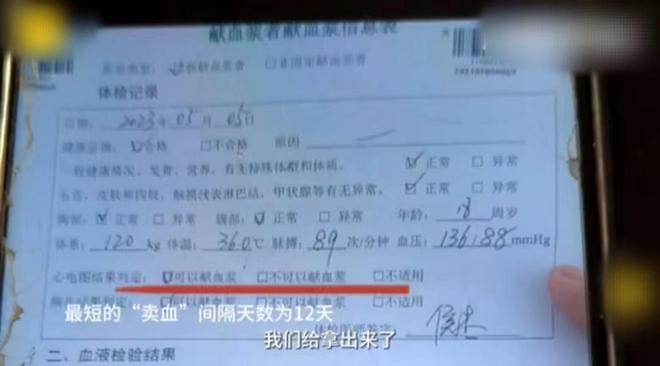 献血浆者献血浆信息表
☑新献血浆者 □非固定献血浆者
体检记录
日期：2023年05月05日
健康征询：☑合格 □不合格 原因
一般健康情况、发育、营养，有无特殊体态和体质。 ☑正常 □异常
五官、皮肤和四肢，触摸浅表淋巴结，甲状腺等有无异常。 ☑正常 □异常
胸部：☑正常 □异常 腹部：☑正常 □异常 年龄：18周岁
体重：120kg 体温：36.0℃ 脉搏：89次/分钟 血压：136/88mmHg
心电图结果判定：☑可以献血浆 □不可以献血浆 □不适用
胸片结果判定：☑可以献血浆 □不可以献血浆 □不适用
最短的“卖血”间隔天数为12天
体检医师签字
我们给拿出来了
二、血液检验结果